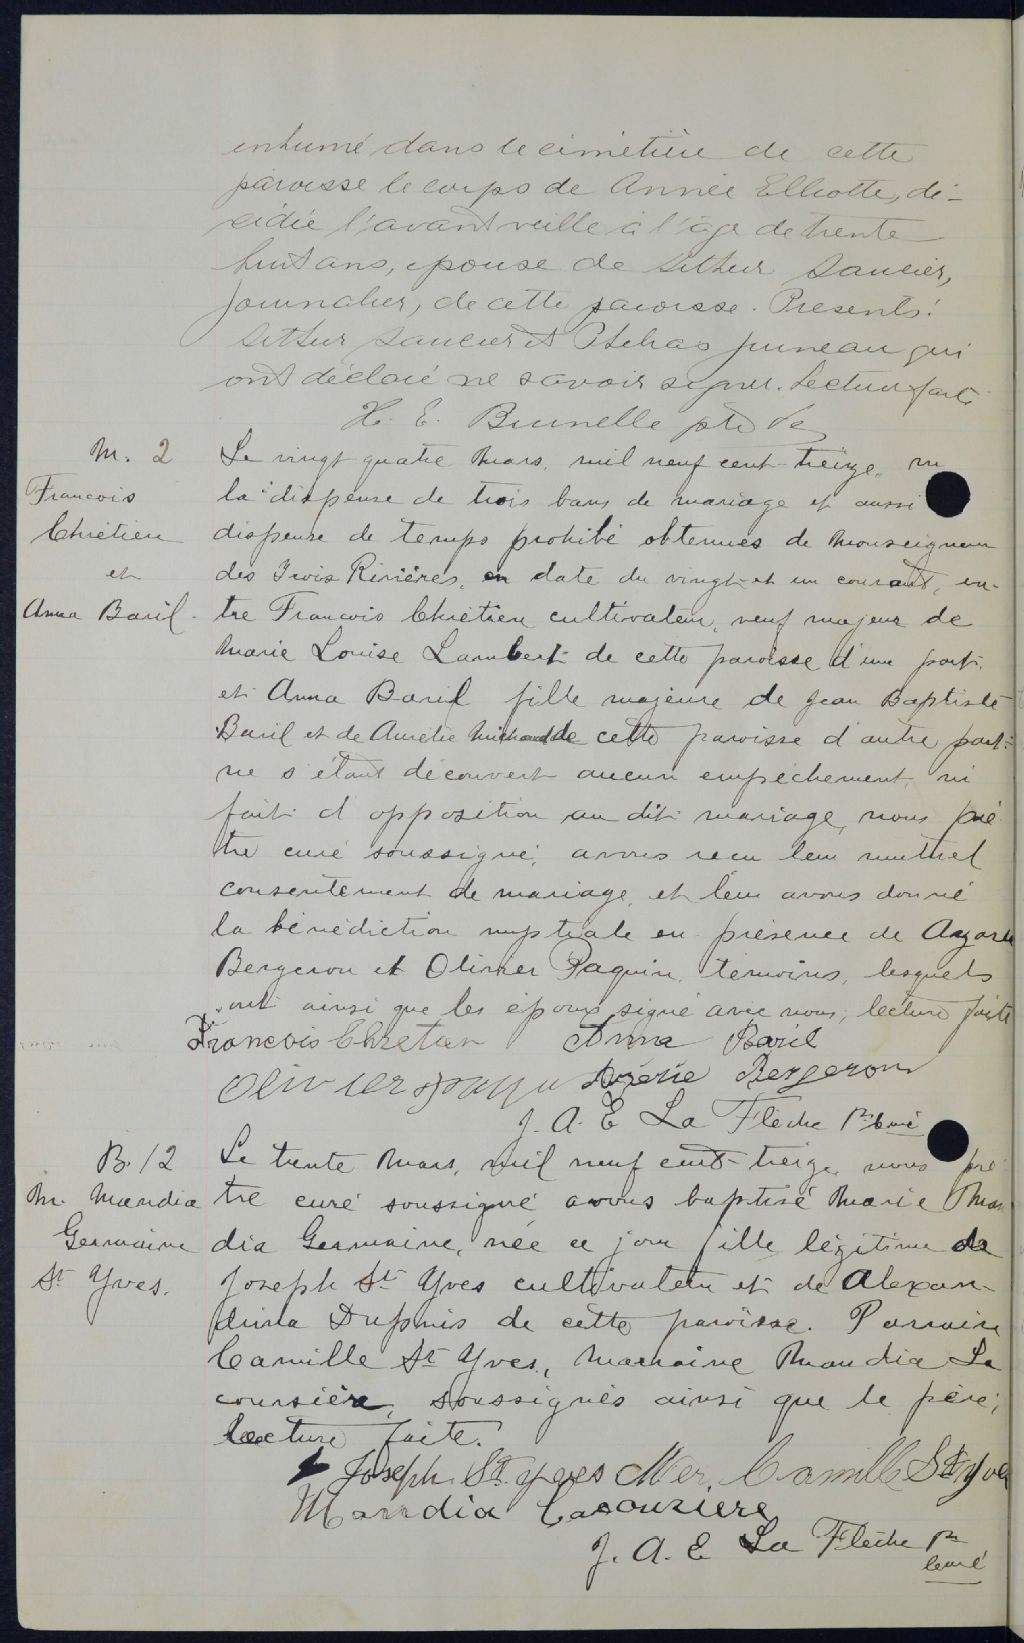 inhumé dans le cimetière de cette
paroisse le corps de Année Elliotte, dé-
cédée l'avant veille à l'âge de trente
huit ans, epouse de Saucier,
journalier, de cette paroisse. Présents:
Saucier et Juneau qui
ont déclaré ne savoir signer. Lecture faite
H. E. Brunelle ptre
M. 2
François
Chrétien
et
Anna Baril.
Le vingt quatre Mars, mil neuf cent treize, vu
la dispense de trois bans de mariage et aussi
dispense de temps prohibé obtenues de Monseigneur
des Trois Rivières, en date du vingt et un courant, en-
tre François Chrétien cultivateur, veuf majeur de
Marie Louise Lambert de cette paroisse d'une part
et Anna Baril fille majeure de Jean Baptiste
Baril et de Aurélie Michaud de cette paroisse d'autre part
ne s'étant découvert aucun empêchement, ni
fait d'opposition au dit mariage, nous prê
tre curé soussigné, avons reçu leur mutuel
consentement de mariage, et leur avons donné
la bénédiction nuptiale en présence de
Bergeron et Olivier Paquin, témoins, lesquels
ont ainsi que les époux signé avec nous, lecture faite
François Chretien Anna Baril
Olivier Bergeron
J. A. E La Flèche Ptre Curé
B. 12
M. Mandia
Germaine
St Yves.
Le trente Mars, mil neuf cent treize, nous prê
tre curé soussigné avons baptisé Marie Man
dia Germaine, née ce jour fille légitime de
Joseph St Yves cultivateur et de Alexan-
drina Dupuis de cette paroisse. Parrain
Camille St Yves, Marraine Mandia La
coursière, soussignés ainsi que le père;
lecture faite.
Joseph St. yves Camille St yves
Mandia Lacoursiere
J. A. E La Flèche Ptre
Curé